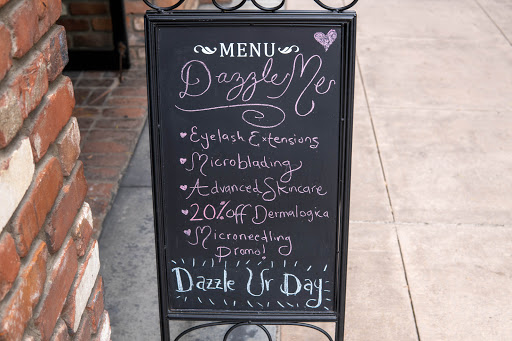 MENU
Dazzle Me
Eyelash Extensions
Microblading
Advanced Skincare
20% off Dermalogica
Microneedling
Promo!
Dazzle Ur Day